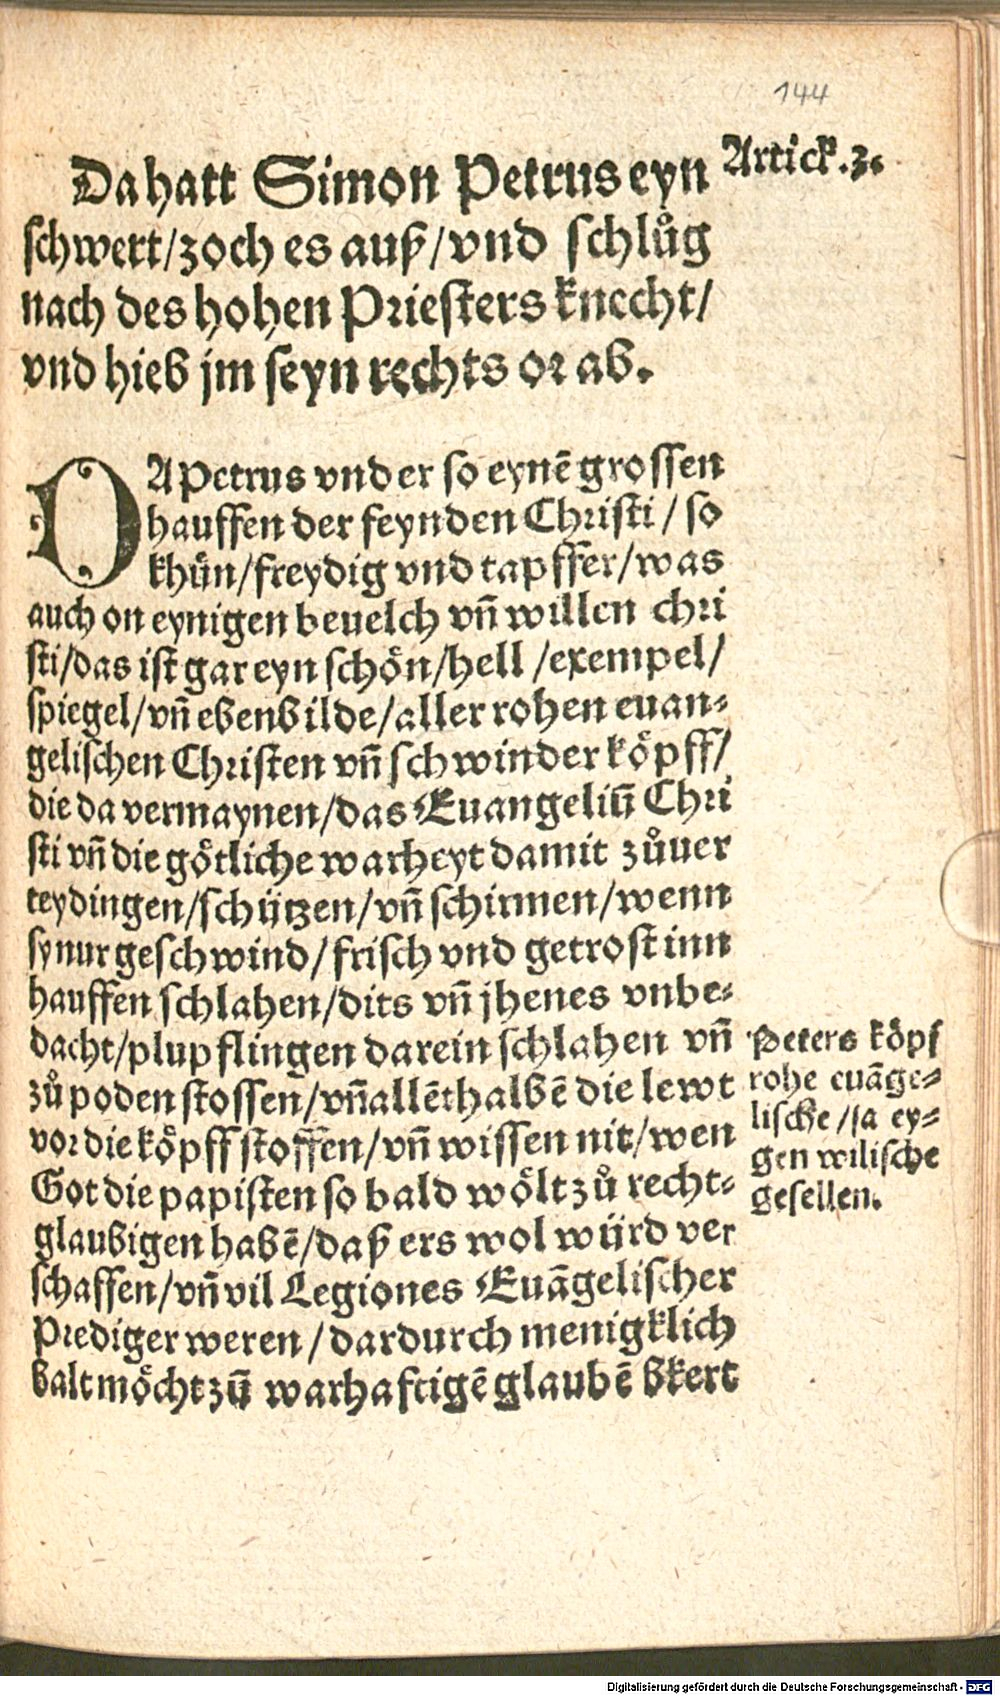 144
Artick.3.
Da hatt Simon Petrus eyn
schwert/zoch es auß/vnd schlůg
nach des hohen Priesters knecht/
vnd hieb jm seyn rechts or ab.
DA Petrus vnder so eynē grossen
hauffen der feynden Christi / so
khün/freydig vnd tapffer/was
auch on eynigen beuelch vñ willen chri
sti/das ist gar eyn schön/hell /exempel/
spiegel/vñ ebenbilde/aller rohen euan-
gelischen Christen vñ schwinder köpff/
die da vermaynen/das Euangeliũ Chri
sti vñ die götliche warheyt damit zůuer
teydingen/schützen/vñ schirmen/wenn
sy nur geschwind/frisch vnd getrost inn
hauffen schlahen/dits vñ jhenes vnbe-
dacht/plupflingen darein schlahen vñ
zů poden stossen/vñ allēthalbē die lewt
vor die köpff stoffen/vñ wissen nit/wen
Got die papisten so bald wölt zů recht-
glaubigen habē/daß ers wol würd ver
schaffen/vñ vil Legiones Euāgelischer
Prediger weren/dardurch menigklich
balt möcht zũ warhaftigē glaubē bkert
Peters köpf
rohe euāge-
lische/ja ey-
gen wilische
gesellen.
Digitalisierung gefördert durch die Deutsche Forschungsgemeinschaft - DFG